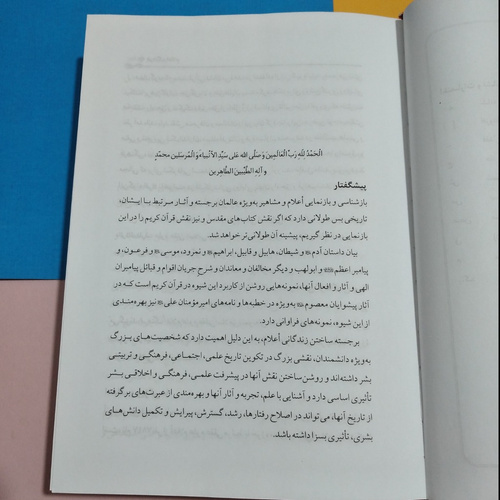 اَلْحَمْدُ لِلّٰهِ رَبِّ الْعَالَمِينَ وَ صَلَّى اللهُ عَلى سَيِّدِ الْأَنْبِيَاءِ وَ الْمُرْسَلينَ مُحَمَّدٍ
وَ آلِهِ الطَّيِّبينَ الطَّاهِرينَ
پیشگفتار
بازشناسی و بازنمایی أعلام و مشاهیر به‌ویژه عالمان برجسته و آثار مرتبط با ایشان،
تاریخی بس طولانی دارد که اگر نقش کتاب‌های مقدس و نیز نقش قرآن کریم را در این
بازنمایی در نظر گیریم، پیشینه آن طولانی‌تر خواهد شد.
بیان داستان آدم و شیطان، هابیل و قابیل، ابراهیم و نمرود، موسی و فرعون، و
پیامبر اعظم و ابولهب و دیگر مخالفان و معاندان و شرح جریان اقوام و قبائل پیامبران
الهی و آثار و افعال آنها، نمونه‌هایی روشن از کاربرد این شیوه در قرآن کریم است که در
آثار پیشوایان معصوم به‌ویژه در خطبه‌ها و نامه‌های امیرمؤمنان علی نیز بهره‌مندی
از این شیوه، نمونه‌های فراوانی دارد.
برجسته ساختن زندگانی أعلام، به این دلیل اهمیت دارد که شخصیت‌های بزرگ
به‌ویژه دانشمندان، نقشی بزرگ در تکوین تاریخ علمی، اجتماعی، فرهنگی و تربیتی
بشر داشته‌اند و روشن ساختن نقش آنها در پیشرفت علمی، فرهنگی و اخلاقی بشر
تأثیری اساسی دارد و آشنایی با علم، تجربه و آثار آنها و بهره‌مندی از عبرت‌های برگرفته
از تاریخ آنها، می‌تواند در اصلاح رفتارها، رشد، گسترش، پیرایش و تکمیل دانش‌های
بشری، تأثیری بسزا داشته باشد.